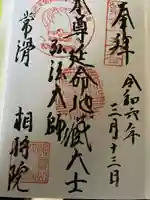 奉拜
令和六年
三月十三日
本尊延命地蔵大士
弘法大師
常滑
相持院